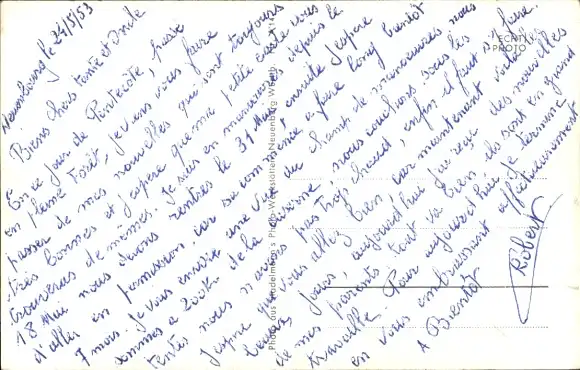 Neuenbourg le 24/5/53
Biens chers tante et oncle
En ce jour de Pentecôte, passé
en pleine forêt, je viens vous faire
passer de mes nouvelles qui sont toujours
très bonnes et j'espère que ma petite carte vous
trouveras de mêmes. Je suis en manoeuvres depuis le
18 Mai nous devons rentrés le 31 Mai ensuite j'espère
d'aller en permission car sa commence a faire long bientôt
7 mois. Je vous envoie une vue du champ de manoeuvres nous
sommes a 200km de la caserne, nous couchons sous les
tentes nous n'avons pas trop chaud, enfin il faut s'y faire.
J'espère que vous allez bien car maintenant
beaux jours, aujourd'hui j'ai reçu des nouvelles
de mes parents tout va bien ils sont en grand
travaille. Pour aujourd'hui je termine
en vous embrassant affectueusement
A Bientôt
Robert
ECRIT
PHOTO
Photo aus Stadelmann's Photo-Werkstätten Neuenbürg Württb.